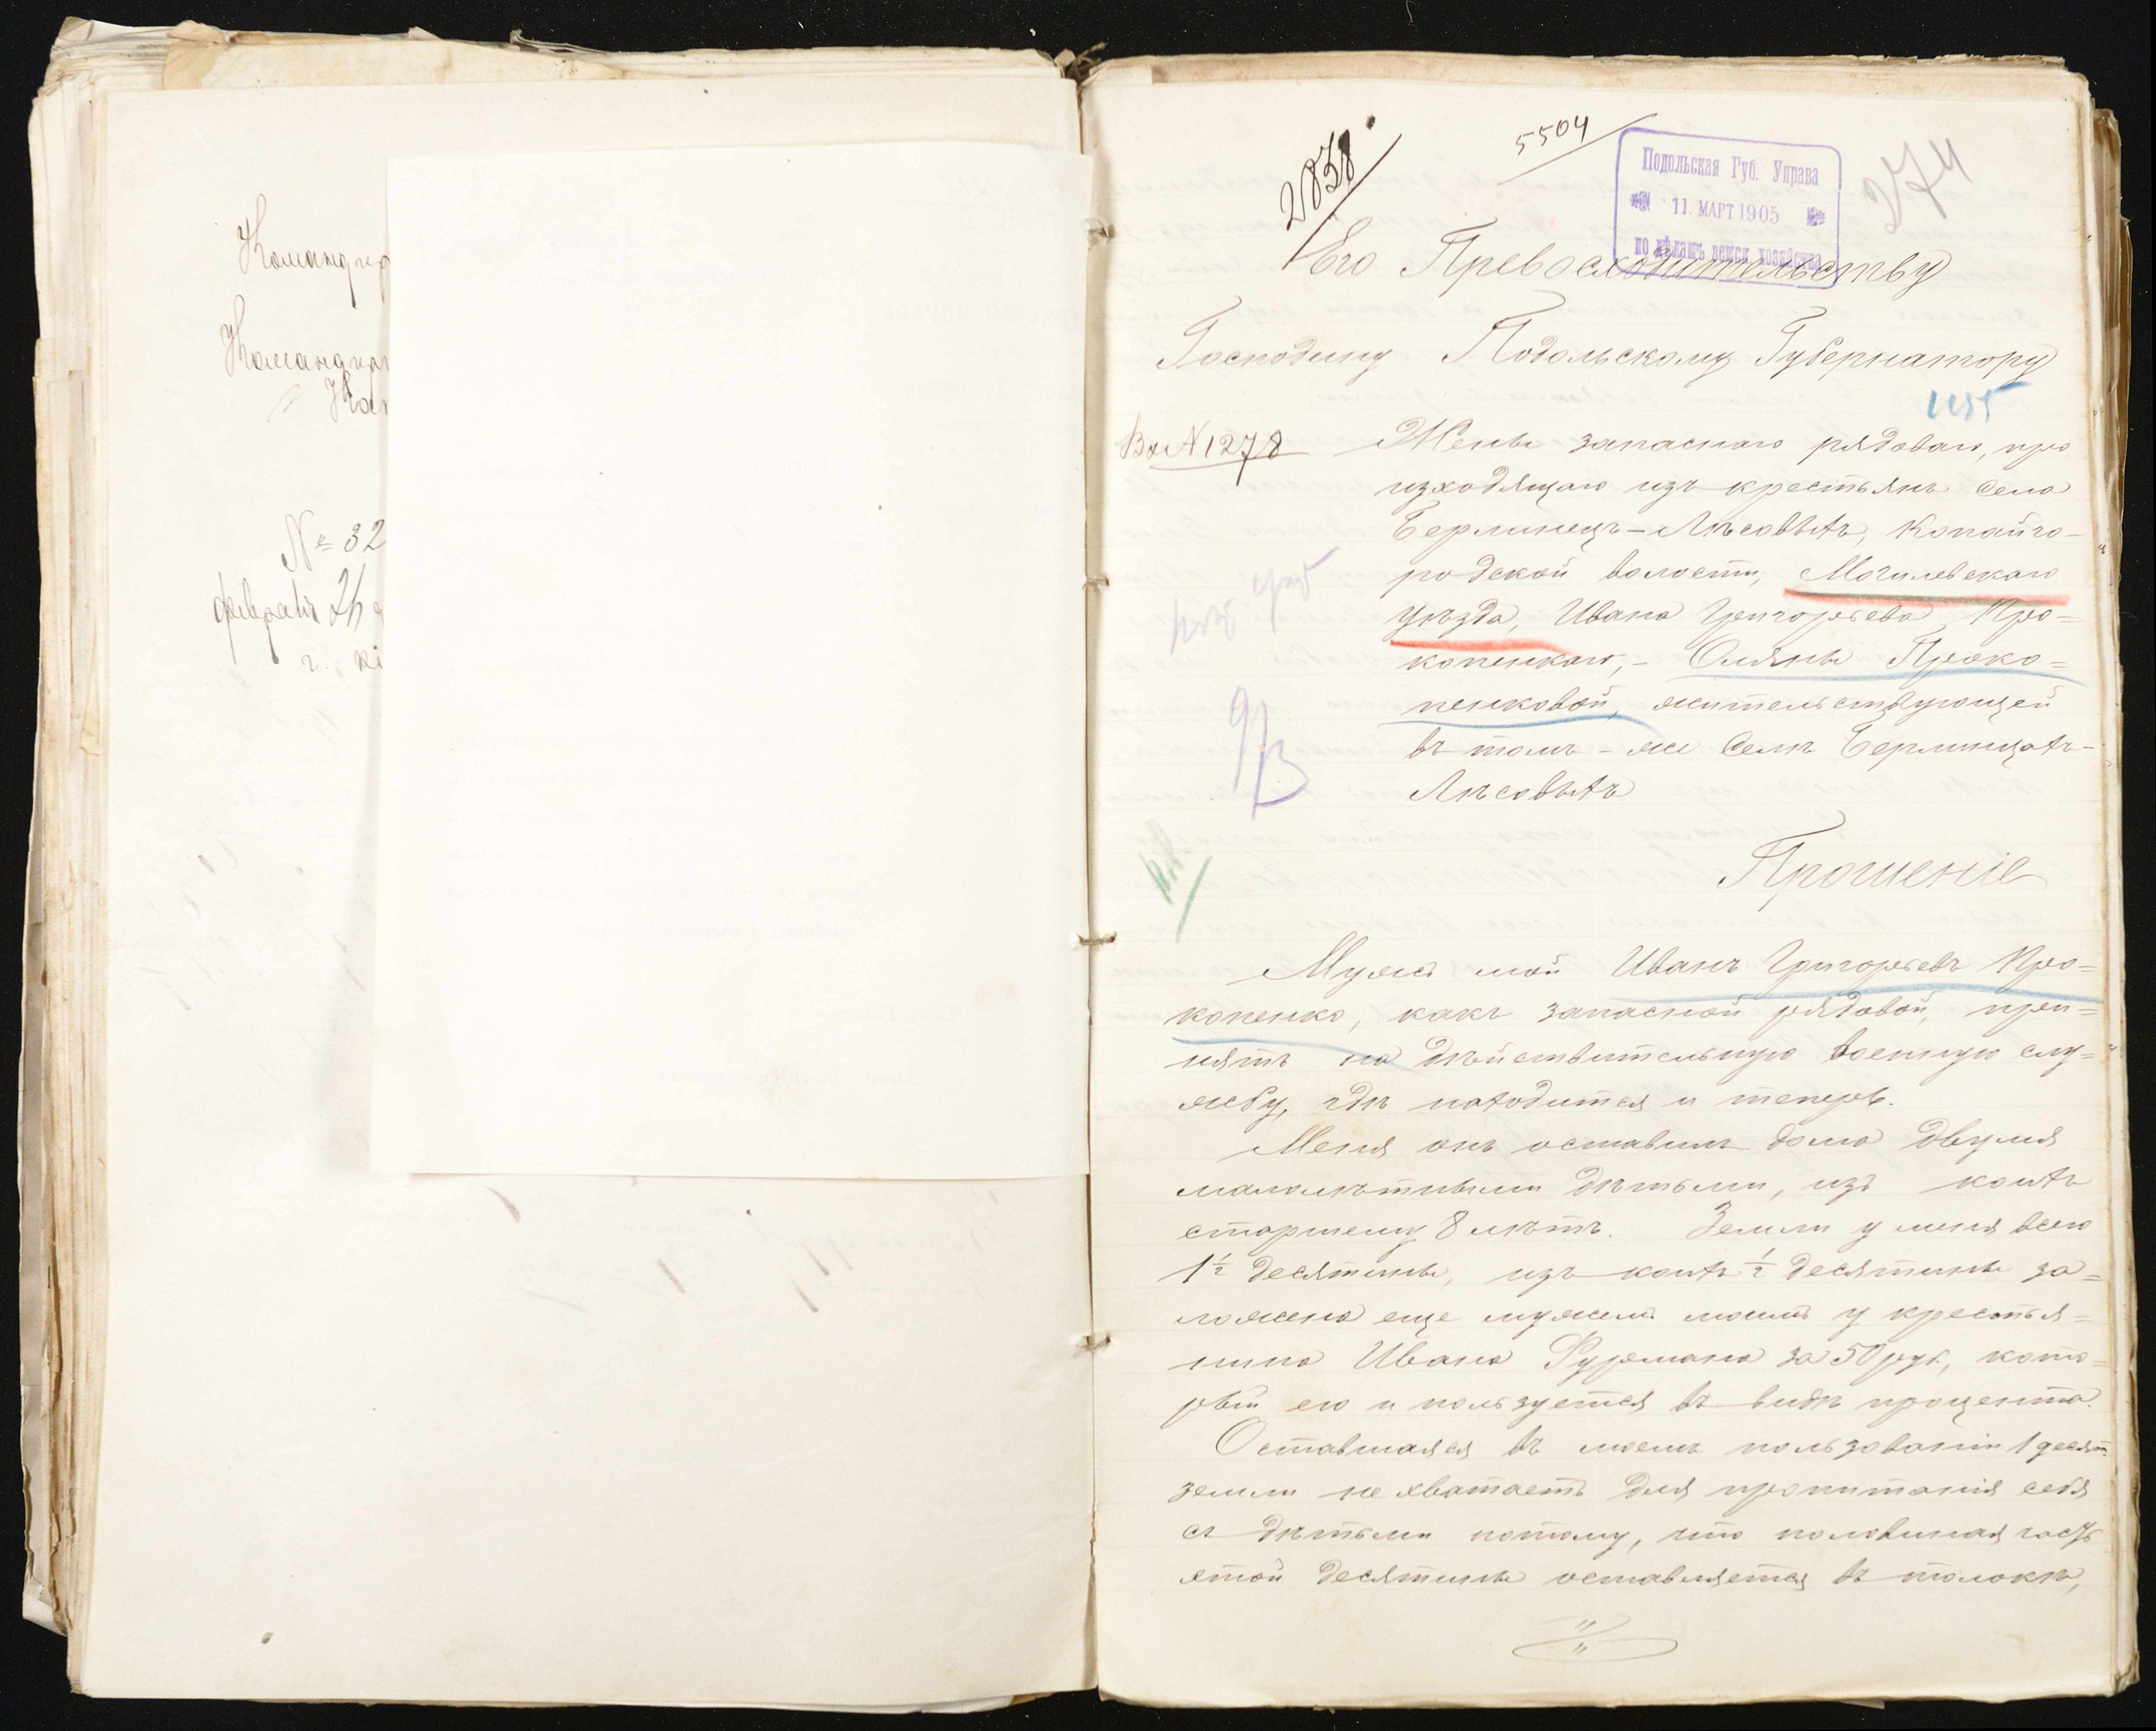 Командир
Командир
№ 32
февраля 26
г. Кі
2838
5504
274
Подольская Губ. Управа
11. МАРТ 1905
по дѣламъ земск. хозяйства
Его Превосходительству
Господину Подольскому Губернатору
Вх N 1278
Жены запаснаго рядоваго, про
изходящаго изъ крестьянъ села
Берлинецъ-Лѣсовыхъ, Копайго-
родской волости, Могилевскаго
уѣзда, Ивана Григорьева Про=
копенкаго, - Оляны Проко=
пенковой, жительствующей
въ томъ-же Селѣ Берлинцахъ-
Лѣсовыхъ
Прошеніе
Мужъ мой Иванъ Григорьевъ Про=
копенко, какъ запасной рядовой, при=
нятъ на дѣйствительную военную слу=
жбу, гдѣ находится и теперь.
Меня онъ оставилъ дома двумя
малолѣтными дѣтьми, изъ коихъ
старшему 8 лѣтъ. Земли у меня всего
1½ десятины, изъ коихъ ½ десятины за=
ложена еще мужемъ моимъ у крестья=
нина Ивана Фурмана за 50 руб, кото=
рый ею и пользуется въ видѣ процента.
Оставшаяся въ моемъ пользованіи 1 десят.
земли не хватаетъ для пропитанія себя
съ дѣтьми потому, что половиная часть
этой десятины оставляется въ толокѣ,